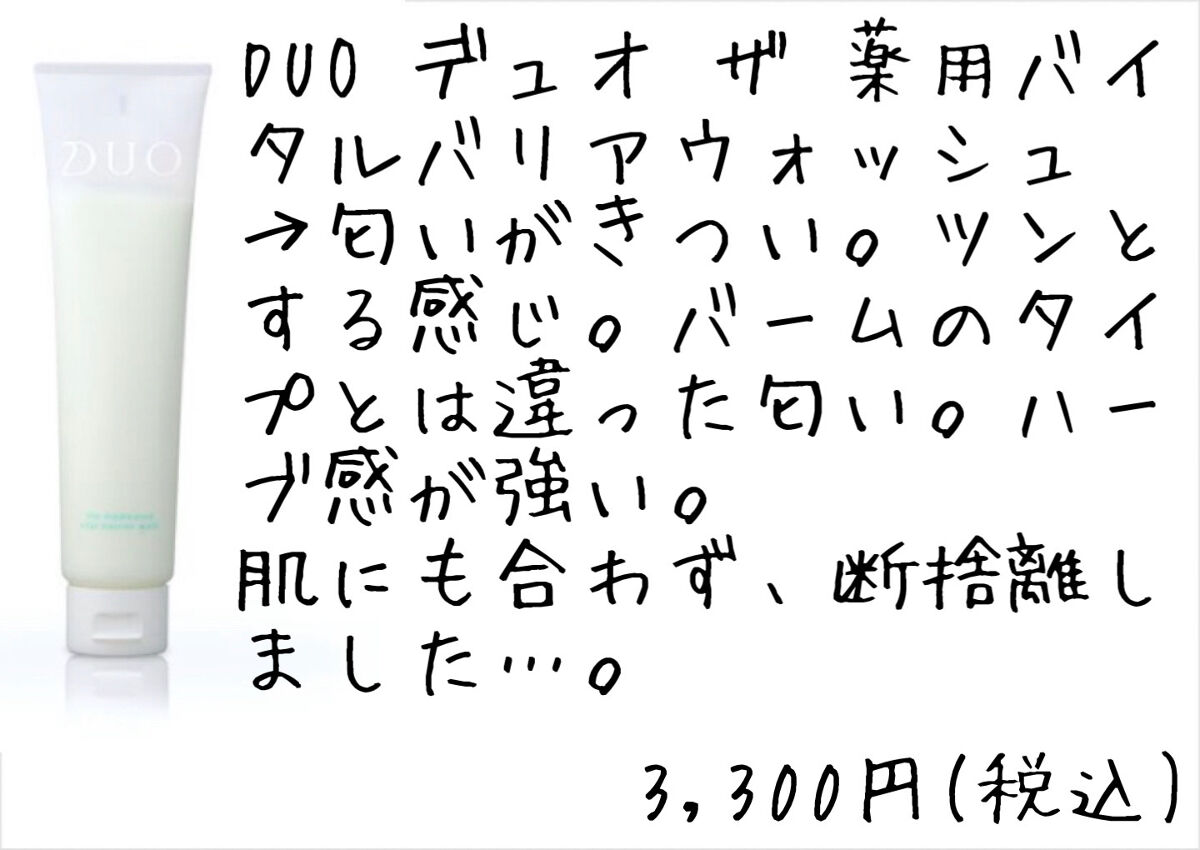 DUO
DUO デュオ ザ 薬用バイ
タルバリアウォッシュ
→匂いがきつい。ツンと
する感じ。バームのタイ
プとは違った匂い。ハー
ブ感が強い。
肌にも合わず、断捨離し
ました…。
3,300円(税込)